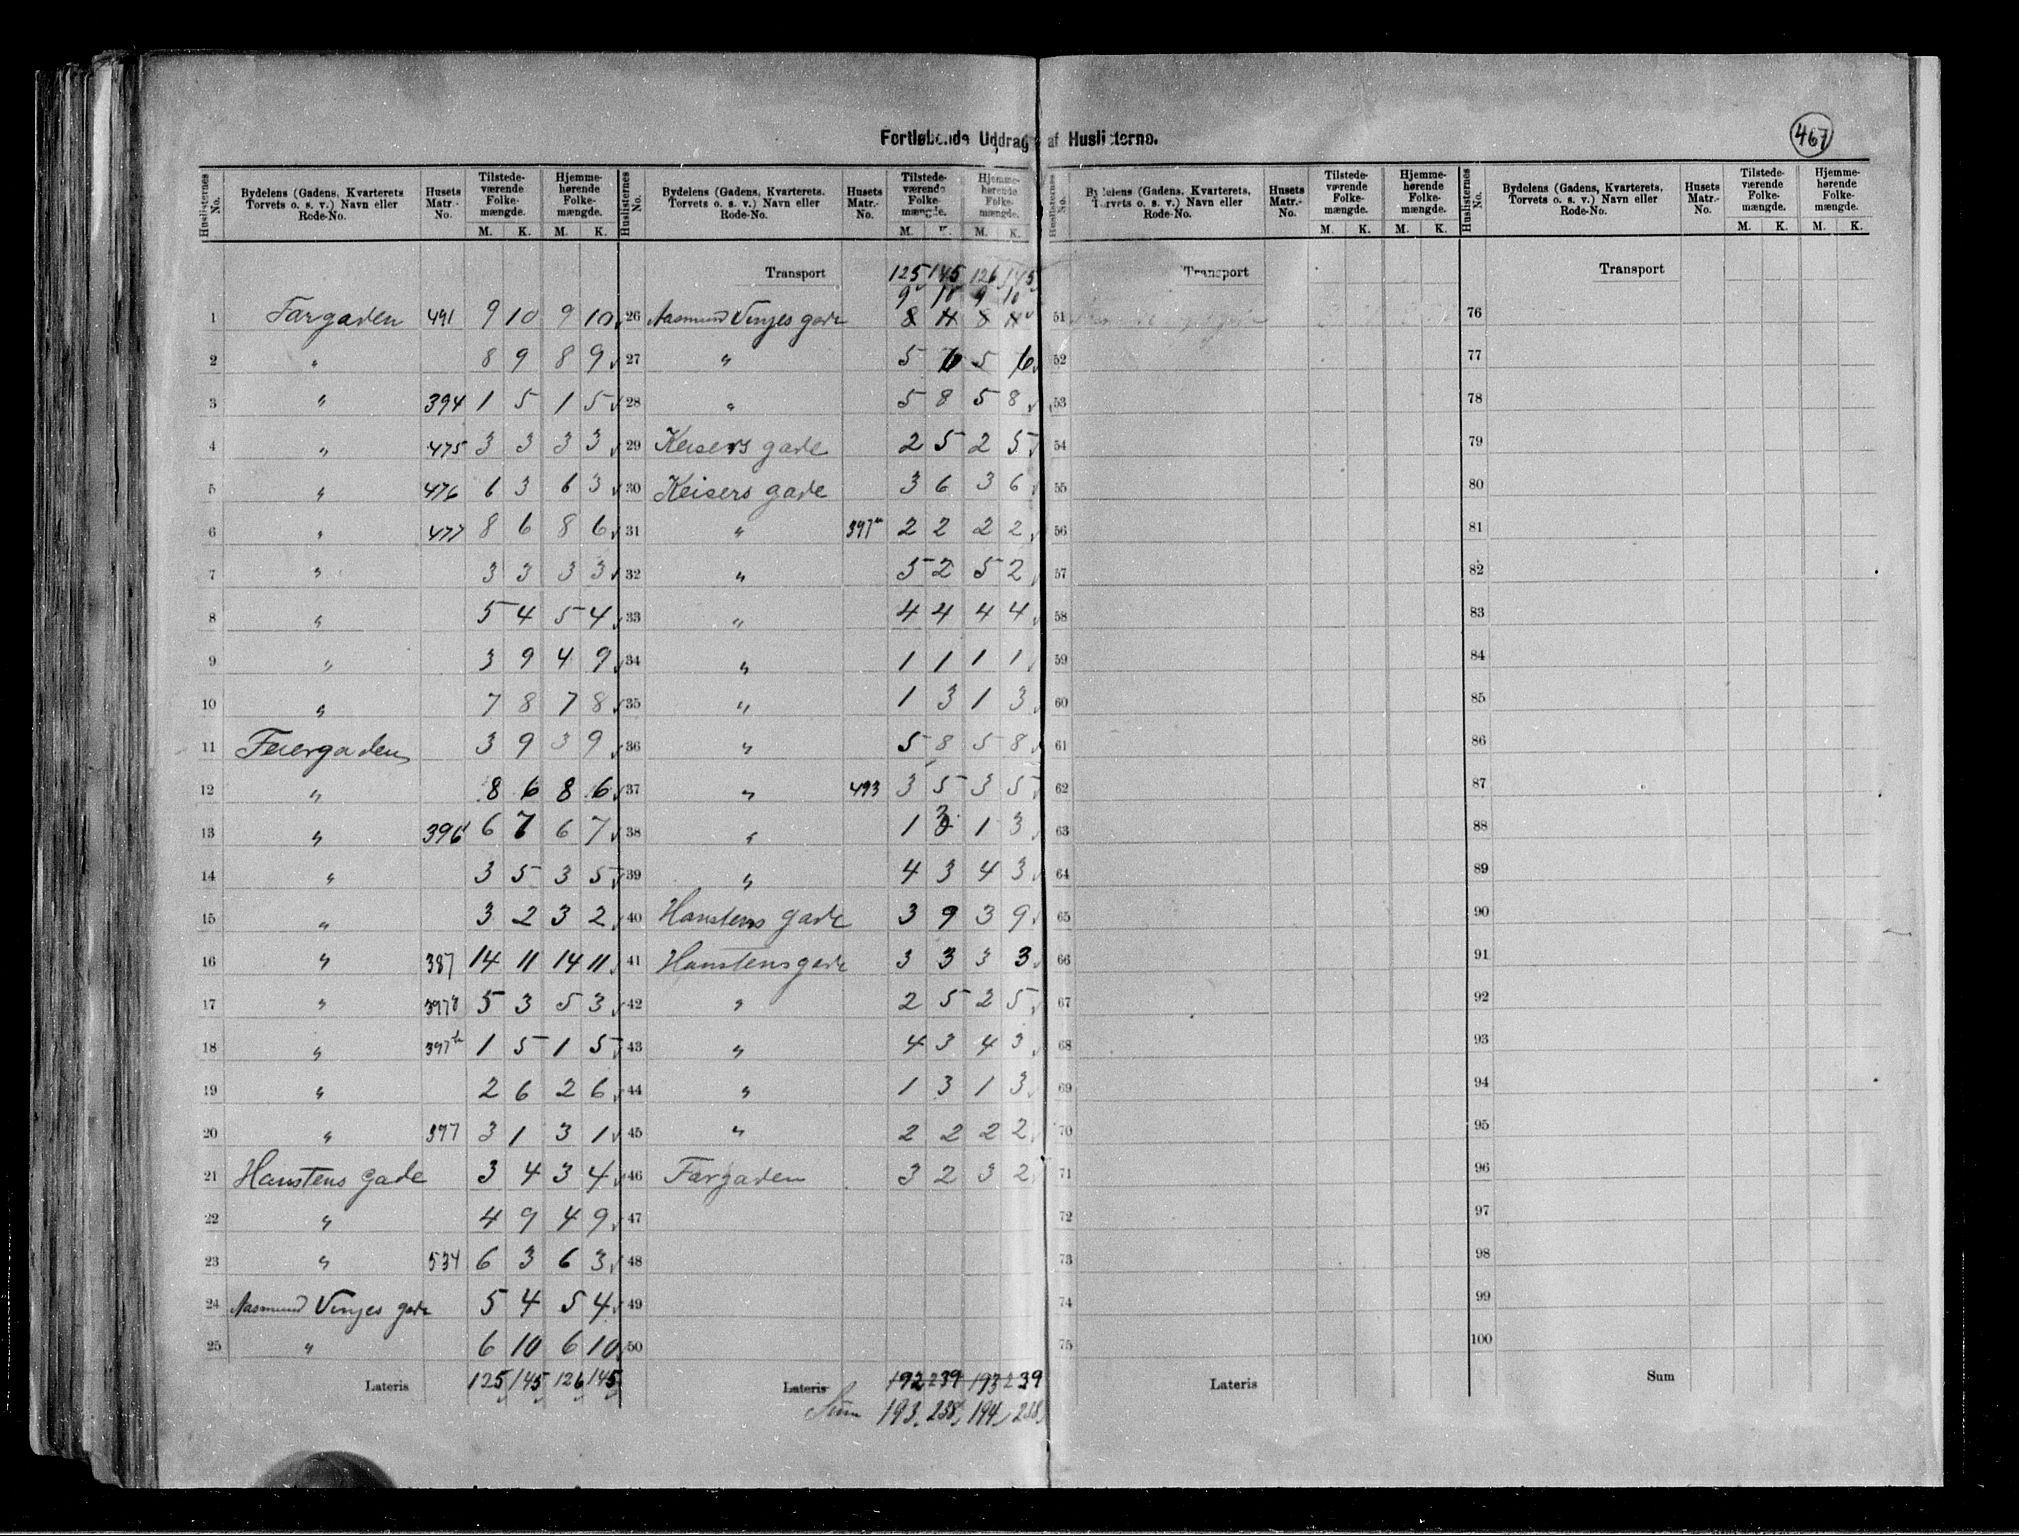 467
Fortløbende Uddrag af Huslisterne.
Huslisternes No. Bydelens (Gadens, Kvarterets Torvets o. s. v.) Navn eller Rode-No. Husets Matr.-No. Tilstedeværende Folkemængde. M. K. Hjemmehørende Folkemængde. M. K.
1 Færgaden 491 9 10 9 10
2 " 8 9 8 9
3 " 394 1 5 1 5
4 " 475 3 3 3 3
5 " 476 6 3 6 3
6 " 477 8 6 8 6
7 " 3 3 3 3
8 " 5 4 5 4
9 " 3 9 4 9
10 " 7 8 7 8
11 Feiergaden 3 9 3 9
12 " 8 6 8 6
13 " 396 6 7 6 7
14 " 3 5 3 5
15 " 3 2 3 2
16 " 387 14 11 14 11
17 " 5 3 5 3
18 " 1 5 1 5
19 " 2 6 2 6
20 " 397 3 1 3 1
21 Hanstens gade 3 4 3 4
22 " 4 9 4 9
23 " 534 6 3 6 3
24 Aasmund Vinjes gade 5 4 5 4
25 " 6 10 6 10
Lateris 125 145 126 145
Huslisternes No. Bydelens (Gadens, Kvarterets. Torvets o. s. v.) Navn eller Rode-No. Husets Matr.-No. Tilstedeværende Folkemængde. M. K. Hjemmehørende Folkemængde. M. K.
Transport 125 145 126 145
9 10 9 10
26 Aasmund Vinjes gade 8 11 8 11
27 " 5 6 5 6
28 " 5 8 5 8
29 Keisers gade 2 5 2 5
30 Keisers gade 3 6 3 6
31 " 397a 2 2 2 2
32 " 5 2 5 2
33 " 4 4 4 4
34 " 1 1 1 1
35 " 1 3 1 3
36 " 5 8 5 8
37 " 493 3 5 3 5
38 " 1 3 1 3
39 " 4 3 4 3
40 Hanstens gade 3 9 3 9
41 Hanstensgade 3 3 3 3
42 " 2 5 2 5
43 " 4 3 4 3
44 " 1 3 1 3
45 " 2 2 2 2
46 Færgaden 3 2 3 2
47
48
49
50
Lateris 192 239 193 239
Sum 193 238 194 238
Huslisternes No. Bydelens (Gadens, Kvarterets, Torvets o. s. v.) Navn eller Rode-No. Husets Matr.-No. Tilstedeværende Folkemængde. M. K. Hjemmehørende Folkemængde. M. K.
Transport
51
52
53
54
55
56
57
58
59
60
61
62
63
64
65
66
67
68
69
70
71
72
73
74
75
Lateris
Huslisternes No. Bydelens (Gadens, Kvarterets, Torvets o. s. v.) Navn eller Rode-No. Husets Matr.-No. Tilstedeværende Folkemængde. M. K. Hjemmehørende Folkemængde. M. K.
Transport
76
77
78
79
80
81
82
83
84
85
86
87
88
89
90
91
92
93
94
95
96
97
98
99
100
Sum